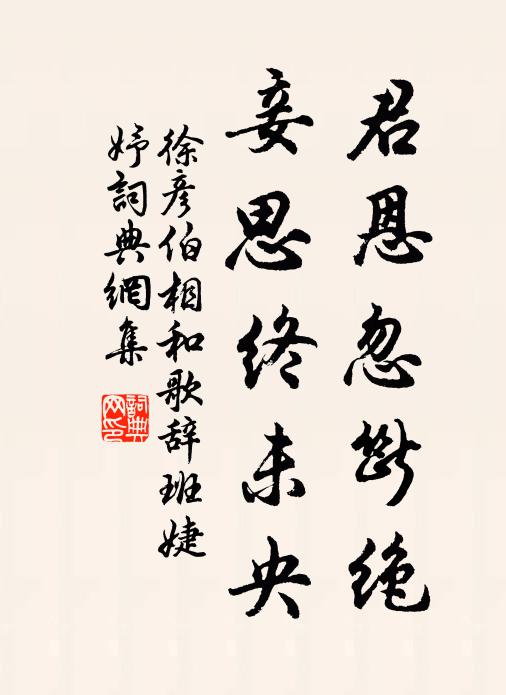 君恩忽断绝
妾思终未央
徐彦伯相和歌辞班婕
妤词典網集
詞典
网印